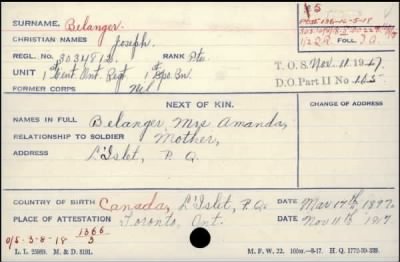 SURNAME, Belanger.
CHRISTIAN NAMES Joseph.
REGL. NO. 3034812. RANK Pte.
UNIT 1st Cent. Ont. Regt 1st Dpo. Bn.
FORMER CORPS Nil
T. O. S. Nov. 11 1917.
D.O. Part II No 165
FOLL.
NEXT OF KIN.
CHANGE OF ADDRESS
NAMES IN FULL Belanger, Mrs Amanda,
RELATIONSHIP TO SOLDIER Mother,
ADDRESS L'Islet, P.Q.
COUNTRY OF BIRTH Canada, L'Islet, P.Q. DATE Mar 17th 1897.
PLACE OF ATTESTATION Toronto, Ont. DATE Nov 11th 1917
O/S-3-8-18 1366/3
L. L. 25989. M. & D. 8191. M. F. W. 22. 100m.-8-17. H. Q. 1772-39-339.